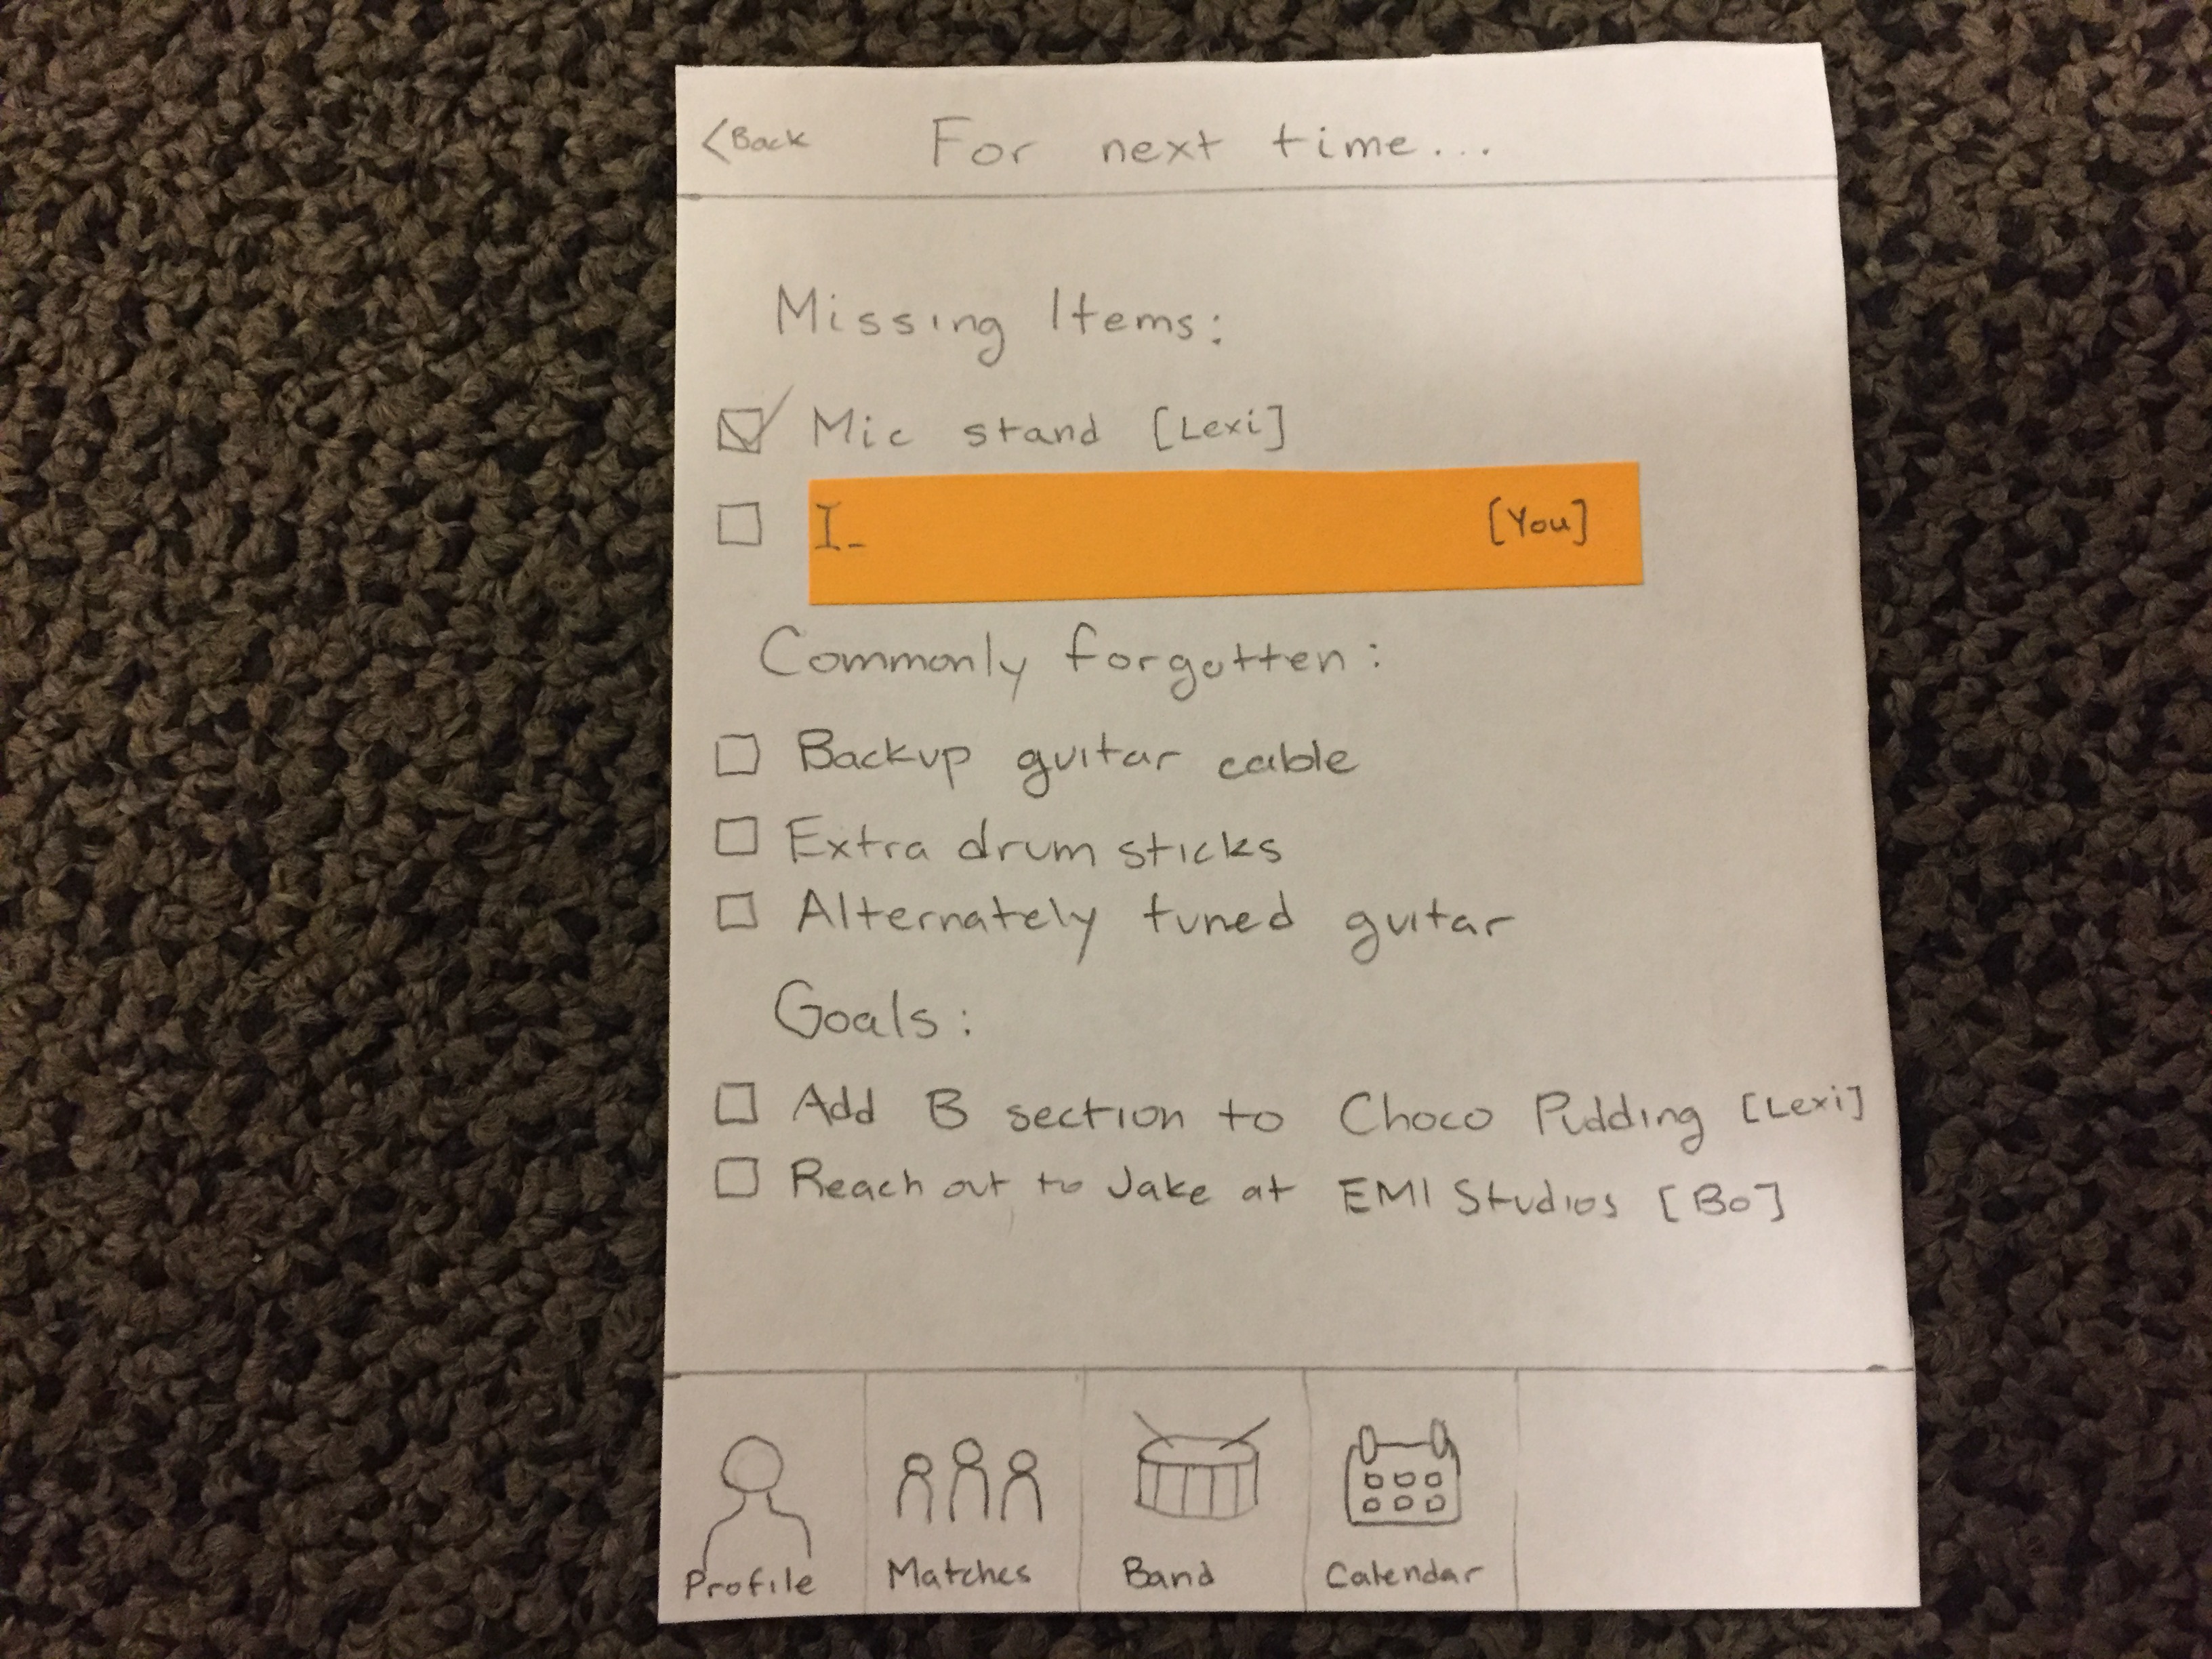 <Back For next time...
Missing Items:
Mic stand [Lexi]
I- [You]
Commonly forgotten:
Backup guitar cable
Extra drum sticks
Alternately tuned guitar
Goals:
Add B section to Choco Pudding [Lexi]
Reach out to Jake at EMI Studios [Bo]
Profile Matches Band Calendar